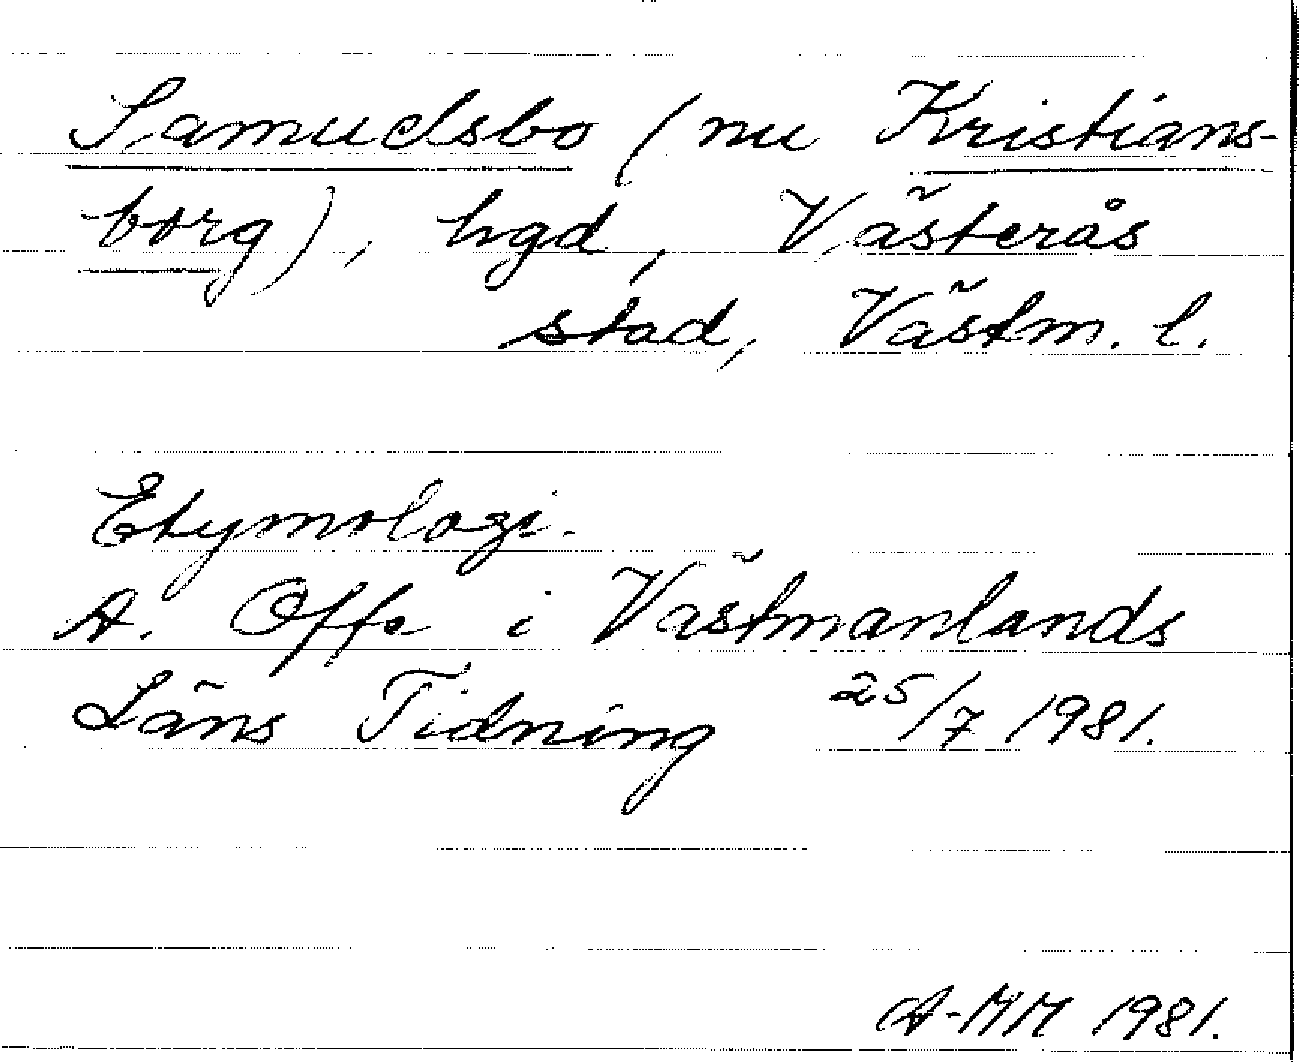 Samuelsbo (nu Kristians-
borg), hgd, Västerås
stad, Västm. l.
Etymologi.
A. Offe i Västmanlands
Läns Tidning 25/7 1981.
A-MM 1981.